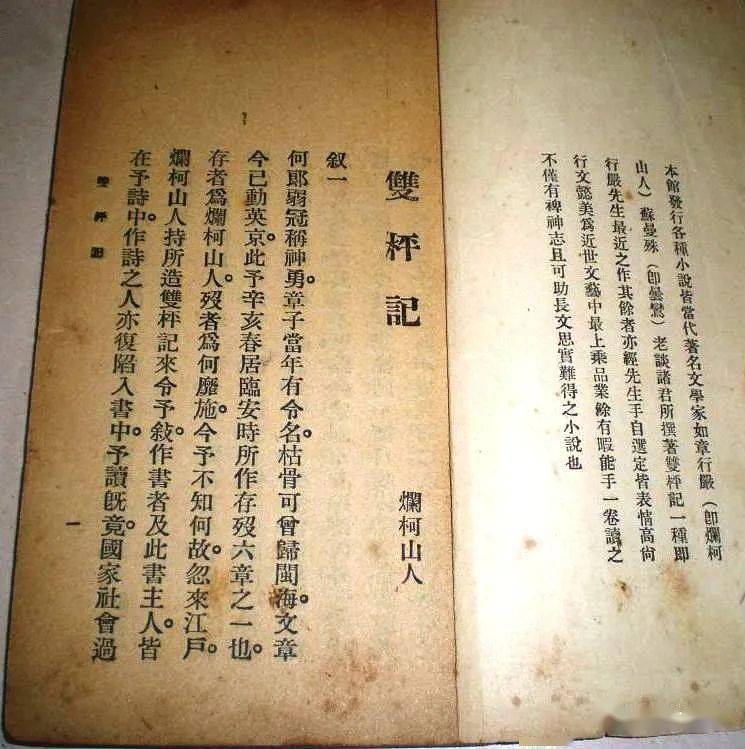 本館發行各種小說皆當代著名文學家如章行嚴（卽爛柯
山人）蘇曼殊（卽曇鸞）老談諸君所撰著雙枰記一種卽
行嚴先生最近之作其餘者亦經先生手自選定皆表情高尙
行文懿美爲近世文藝中最上乘品業餘有暇能手一卷讀之
不僅有裨神志且可助長文思實難得之小說也
雙枰記
爛柯山人
叙一
何郎弱冠稱神勇。章子當年有令名。枯骨可曾歸閩海。文章
今已動英京。此予辛亥春居臨安時所作存歿六章之一也。
存者爲爛柯山人。歿者爲何靡施。今予不知何故。忽來江戶。
爛柯山人持所造雙枰記來令予敍。作書者及此書主人。皆
在予詩中。作詩之人亦復陷入書中。予讀旣竟。國家社會過
雙枰記
一